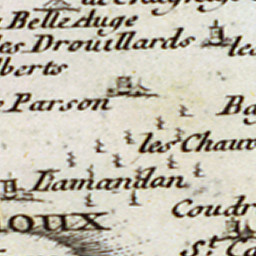 Belleduge
les Drouillards
les
lberts
Parson
les Chauv
Lamandan
Coudr
IOUX
St. Ca